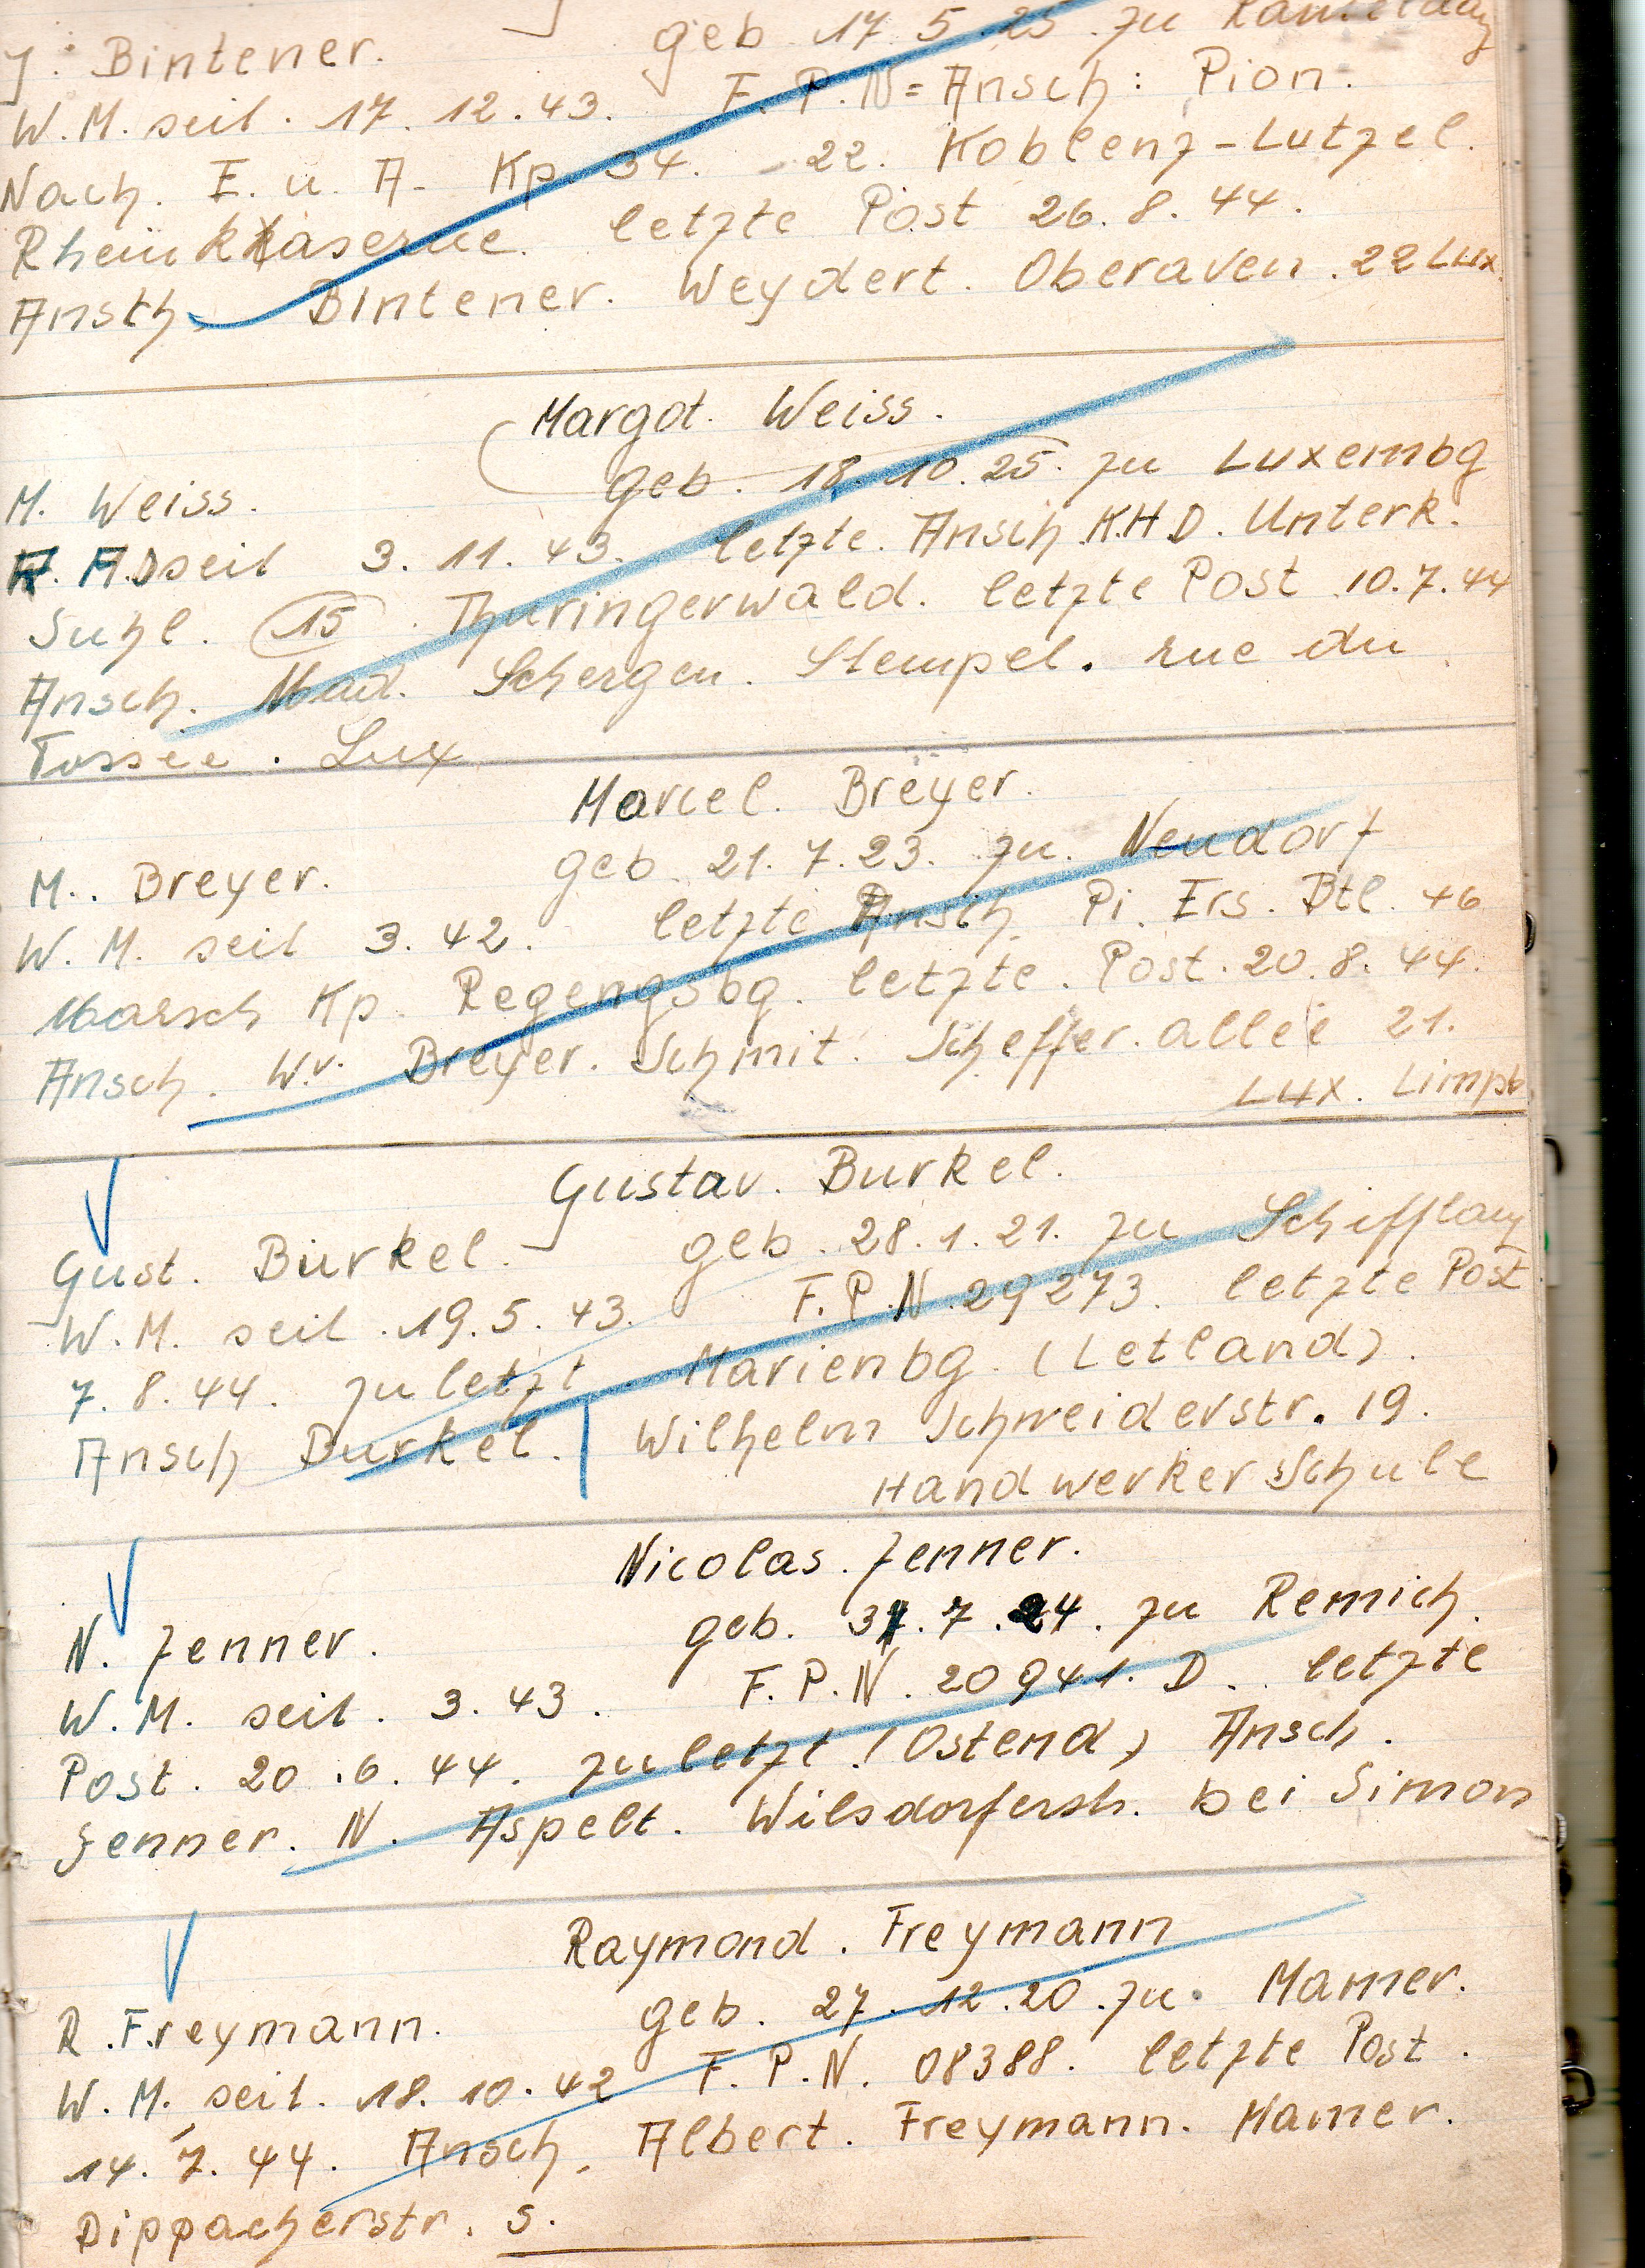 J. Bintener. geb. 17. 5. 25. zu
W. M. seit. 17. 12. 43. F. P. N = Ansch: Pion.
Nach. E. u. A. Kp. 34. - 22. Koblenz - Lutzel.
Rhein kaserne. letzte Post 26. 8. 44.
Ansch. Bintener. Weydert. Oberaven. 22 Lux.
Margot. Weiss.
M. Weiss. geb. 18. 10. 25. zu Luxembg
A.D seit 3. 11. 43. letzte. Ansch. K.H.D. Unterk.
Suhl. (15). Thuringerwald. letzte Post 10. 7. 44
Ansch. Mad. Schergen. Stempel. rue du
Fossée. Lux
Marcel. Breyer.
M. Breyer. geb. 21. 7. 23. zu. Neudorf
W. M. seit 3. 42. letzte Ansch. Pi. Ers. Btl. 46
Marsch Kp. Regengsbg. letzte. Post. 20. 8. 44.
Ansch. Wv. Breyer. Schmit. Scheffer. allee 21.
Lux. Limpb
Gustav. Burkel.
Gust. Burkel. geb. 28. 1. 21. zu Schifflang
W. M. seit. 19. 5. 43. F. P. N. 29273. letzte Post
7. 8. 44. zuletzt. Marienbg. (Letland).
Ansch Burkel. Wilhelm Schneiderstr. 19.
Handwerker Schule
Nicolas. Jenner.
N. Jenner. geb. 31. 7. 24. zu Remich.
W. M. seit. 3. 43. F. P. N. 20941. D. letzte
Post. 20. 6. 44. zuletzt (Ostend) Ansch.
Jenner. N. Aspelt. Wilsdorferstr. bei Simon
Raymond. Freymann
R. Freymann. geb. 27. 12. 20. zu. Mamer.
W. M. seit. 18. 10. 42 F. P. N. 08388. letzte Post.
14. 7. 44. Ansch. Albert. Freymann. Mamer.
Dippacherstr. 5.